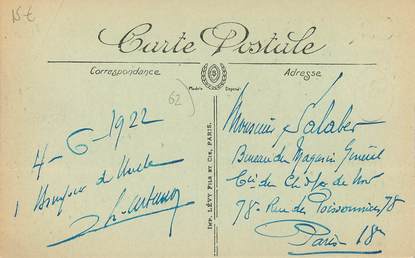 15 €
Carte Postale
Correspondance
Adresse
Modèle Déposé
62
4-6-1922
1
IMP. LÉVY FILS ET CIE, PARIS.
Monsieur Salaber
Bureau du Magasin Général
Cie du Ch. de fer du Nor
78 - Rue des Poissonniers 78
Paris 18e